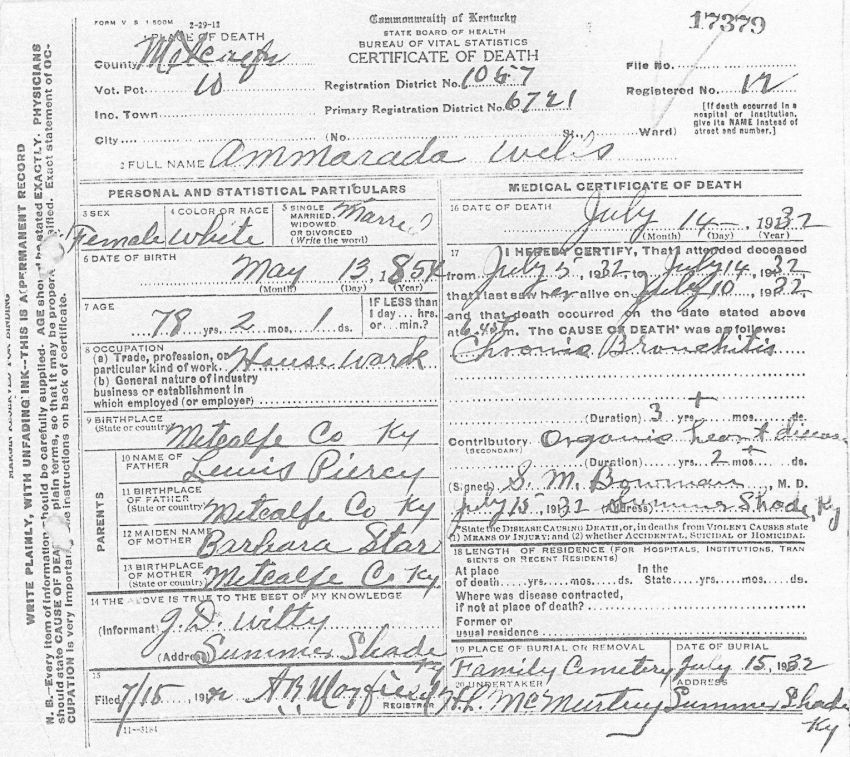 FORM V S 1 500M 2-29-12
Commonwealth of Kentucky
17379
STATE BOARD OF HEALTH
BUREAU OF VITAL STATISTICS
CERTIFICATE OF DEATH
1 PLACE OF DEATH
County Metcalfe
File No.
Vot. Pct. 10
Registration District No. 1057
Registered No. 12
Inc. Town
Primary Registration District No. 6721
[If death occurred in a hospital or institution, give its NAME instead of street and number.]
City (No. St., Ward)
2 FULL NAME Ammarada Wells
PERSONAL AND STATISTICAL PARTICULARS
3 SEX Female
4 COLOR OR RACE White
5 SINGLE MARRIED, WIDOWED OR DIVORCED (Write the word) Married
6 DATE OF BIRTH
May 13, 1854
(Month) (Day) (Year)
7 AGE
78 yrs. 2 mos. 1 ds.
IF LESS than 1 day... hrs. or... min.?
8 OCCUPATION
(a) Trade, profession, or
particular kind of work House Work
(b) General nature of industry
business or establishment in
which employed (or employer)
9 BIRTHPLACE
(State or country) Metcalfe Co Ky
PARENTS
10 NAME OF FATHER Lewis Piercy
11 BIRTHPLACE OF FATHER
(State or country) Metcalfe Co Ky
12 MAIDEN NAME OF MOTHER Barbara Star
13 BIRTHPLACE OF MOTHER
(State or country) Metcalfe Co Ky.
14 THE ABOVE IS TRUE TO THE BEST OF MY KNOWLEDGE
(Informant) J. D. Witty
(Address) Summer Shade Ky
15
Filed 7/15, 19
REGISTRAR
11-3184
MEDICAL CERTIFICATE OF DEATH
16 DATE OF DEATH
July 14, 1932
(Month) (Day) (Year)
17 I HEREBY CERTIFY, That I attended deceased
from July 5, 1932 to July 14, 1932,
that I last saw her alive on July 10, 1932
and that death occurred on the date stated above
at 6.45 m. The CAUSE OF DEATH* was as follows:
Chronic Bronchitis
(Duration) 3 yrs. + mos. ds.
Contributory Organic heart disease
(SECONDARY)
(Duration) 2 yrs. + mos. ds.
(Signed) S. M. Bowman, M. D.
July 15, 1932 (Address) Summer Shade, Ky
*State the DISEASE CAUSING DEATH, or, in deaths from VIOLENT CAUSES state
(1) MEANS OF INJURY; and (2) whether ACCIDENTAL, SUICIDAL or HOMICIDAL
18 LENGTH OF RESIDENCE (FOR HOSPITALS, INSTITUTIONS, TRAN
SIENTS OR RECENT RESIDENTS)
At place In the
of death yrs. mos. ds. State yrs. mos. ds.
Where was disease contracted,
if not at place of death?
Former or
usual residence
19 PLACE OF BURIAL OR REMOVAL
Family Cemetery
DATE OF BURIAL
July 15, 1932
20 UNDERTAKER
H. L. McMurtrey
ADDRESS
Summer Shade Ky
MARGIN RESERVED FOR BINDING
WRITE PLAINLY, WITH UNFADING INK--THIS IS A PERMANENT RECORD
N. B.--Every item of information should be carefully supplied. AGE should be stated EXACTLY. PHYSICIANS
should state CAUSE OF DEATH in plain terms, so that it may be properly classified. Exact statement of OC-
CUPATION is very important. See instructions on back of certificate.